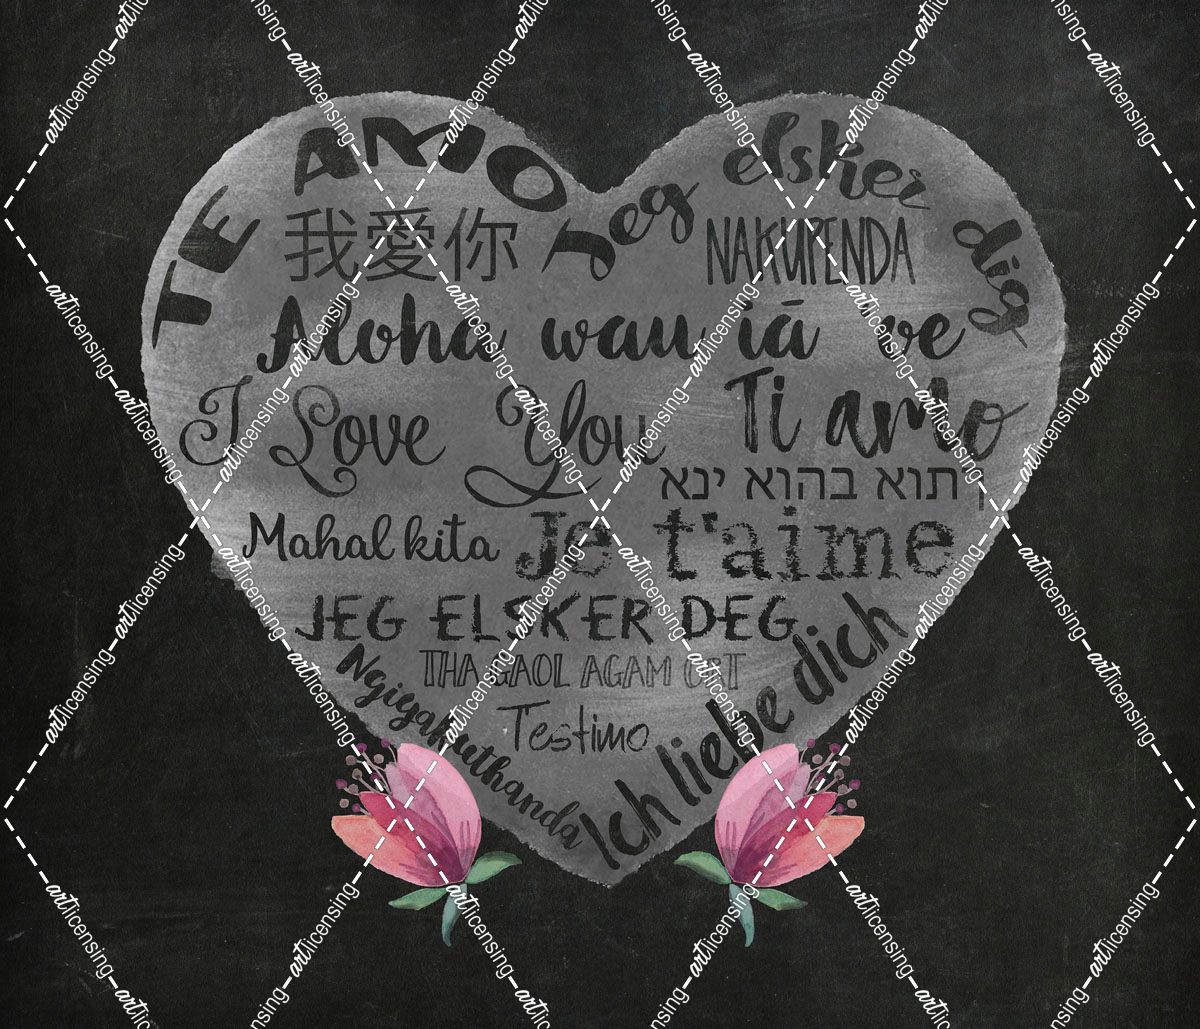 TE AMO
Jeg elsker dig
我愛你
NAKUPENDA
Aloha wau iā ʻoe
I Love You
Ti amo
ךתוא בהוא ינא
Mahal kita
Je t'aime
JEG ELSKER DEG
THA GAOL AGAM ORT
Ngiyakuthanda
Testimo
Ich liebe dich
artlicensing